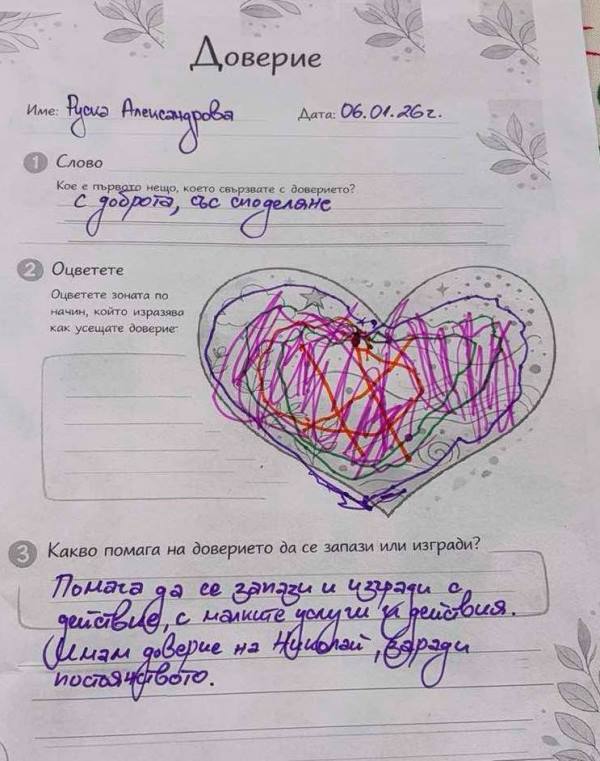 Доверие
Име: Русиа Александрова Дата: 06.01.26г.
1 Слово
Кое е първото нещо, което свързвате с доверието?
с доброта, със споделяне
2 Оцветете
Оцветете зоната по
начин, който изразява
как усещате доверие:
3 Какво помага на доверието да се запази или изгради?
Помага да се запази и изгради с
действие, с малките услуги и действия.
Имам доверие на Николай, заради
постоянството.